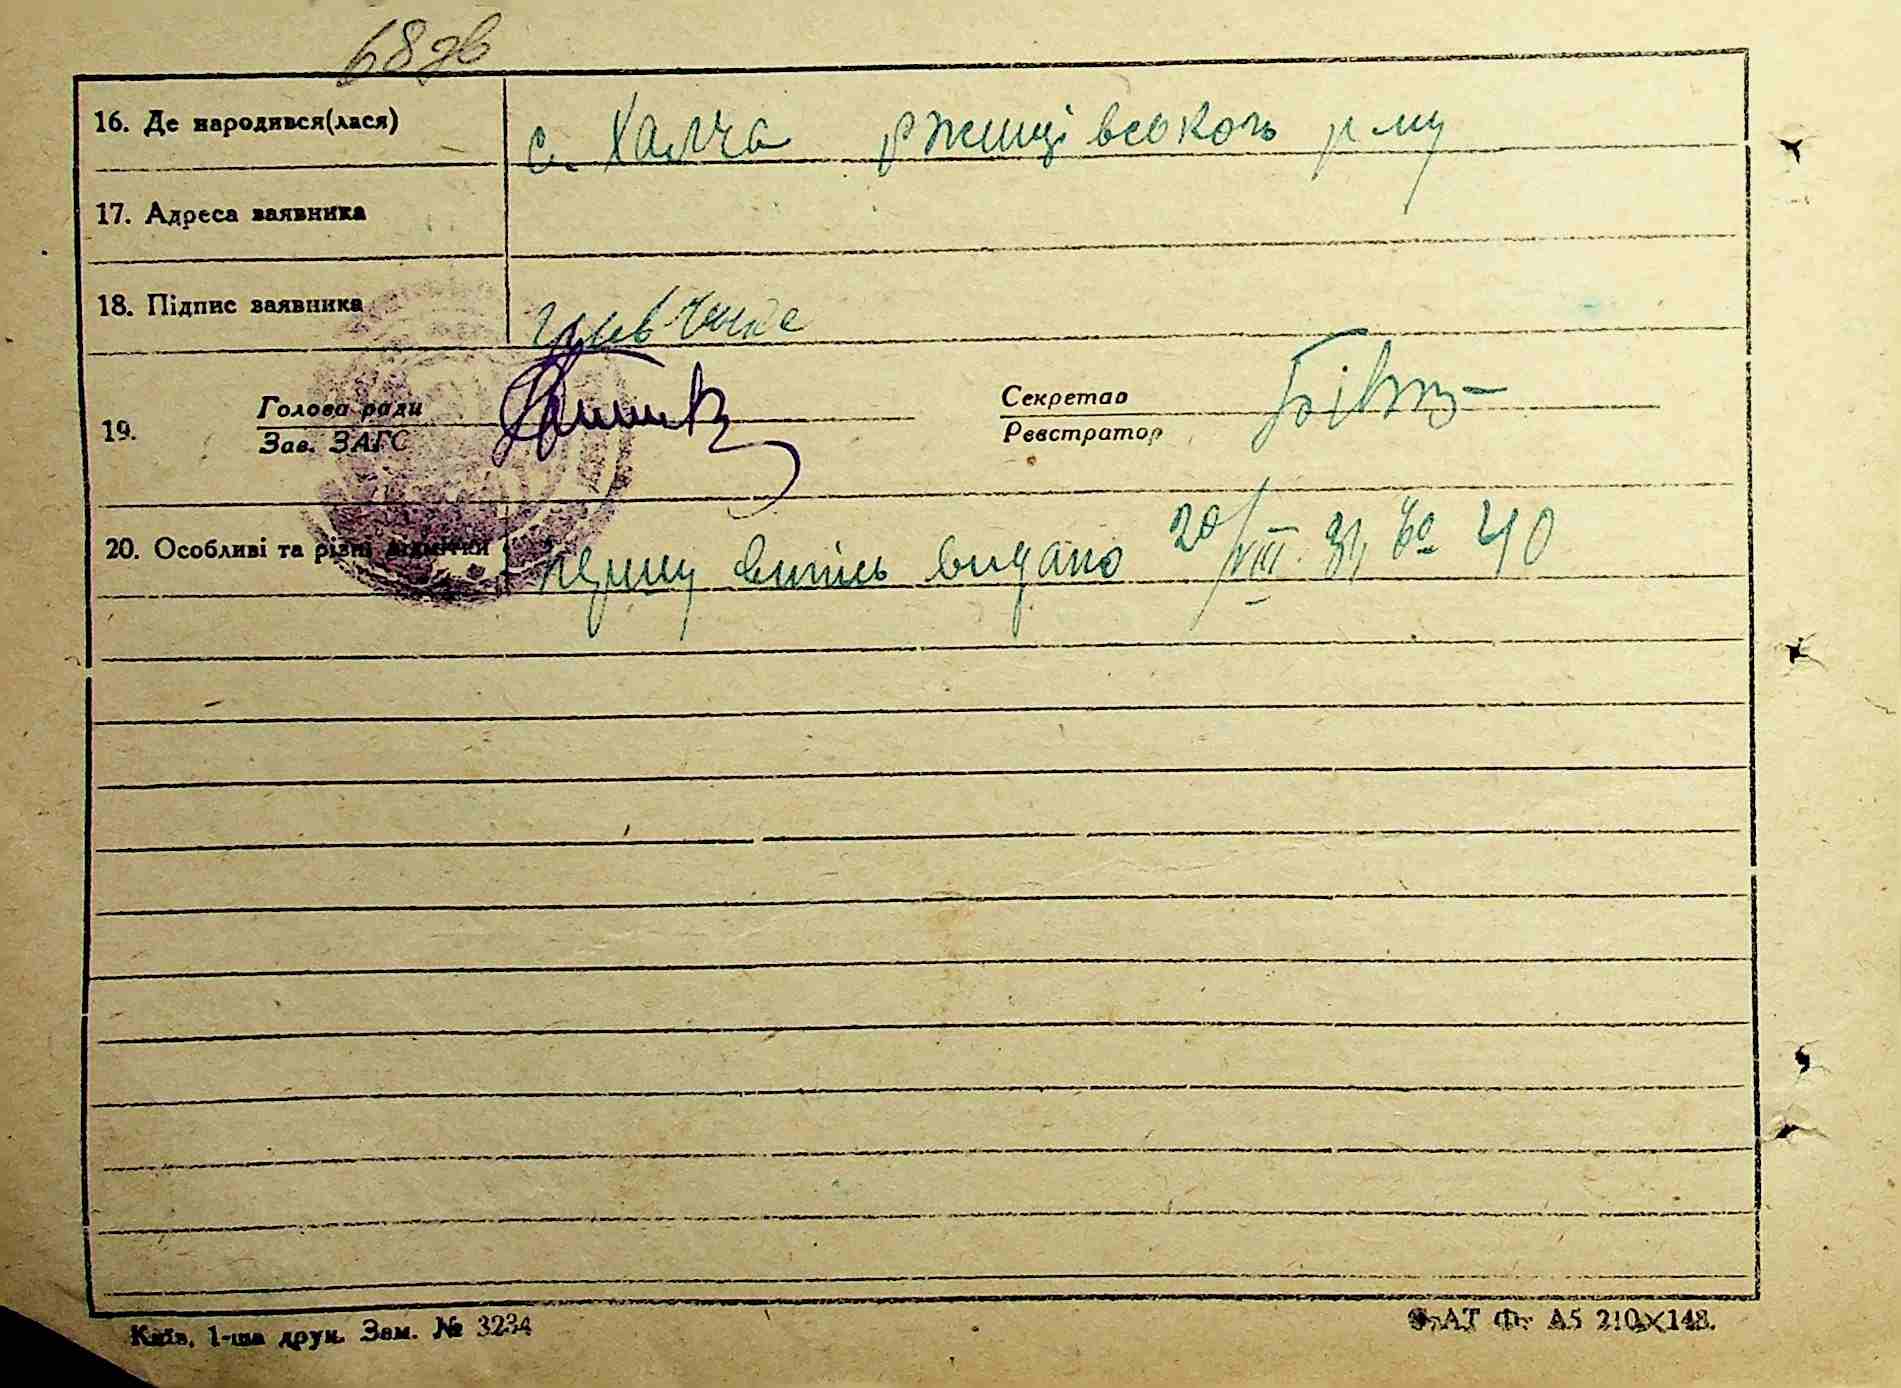 68 зв
16. Де народився(лася) с. Халча Ржищівського р-ну
17. Адреса заявника
18. Підпис заявника
19. Голова ради Секретар
Зав. ЗАГС Реєстратор
20. Особливі та різні відмітки першу витпіс видано 20/VIII 31, № 40
Київ, 1-ша друк. Зам. № 3234 Ф. А5 210×148.